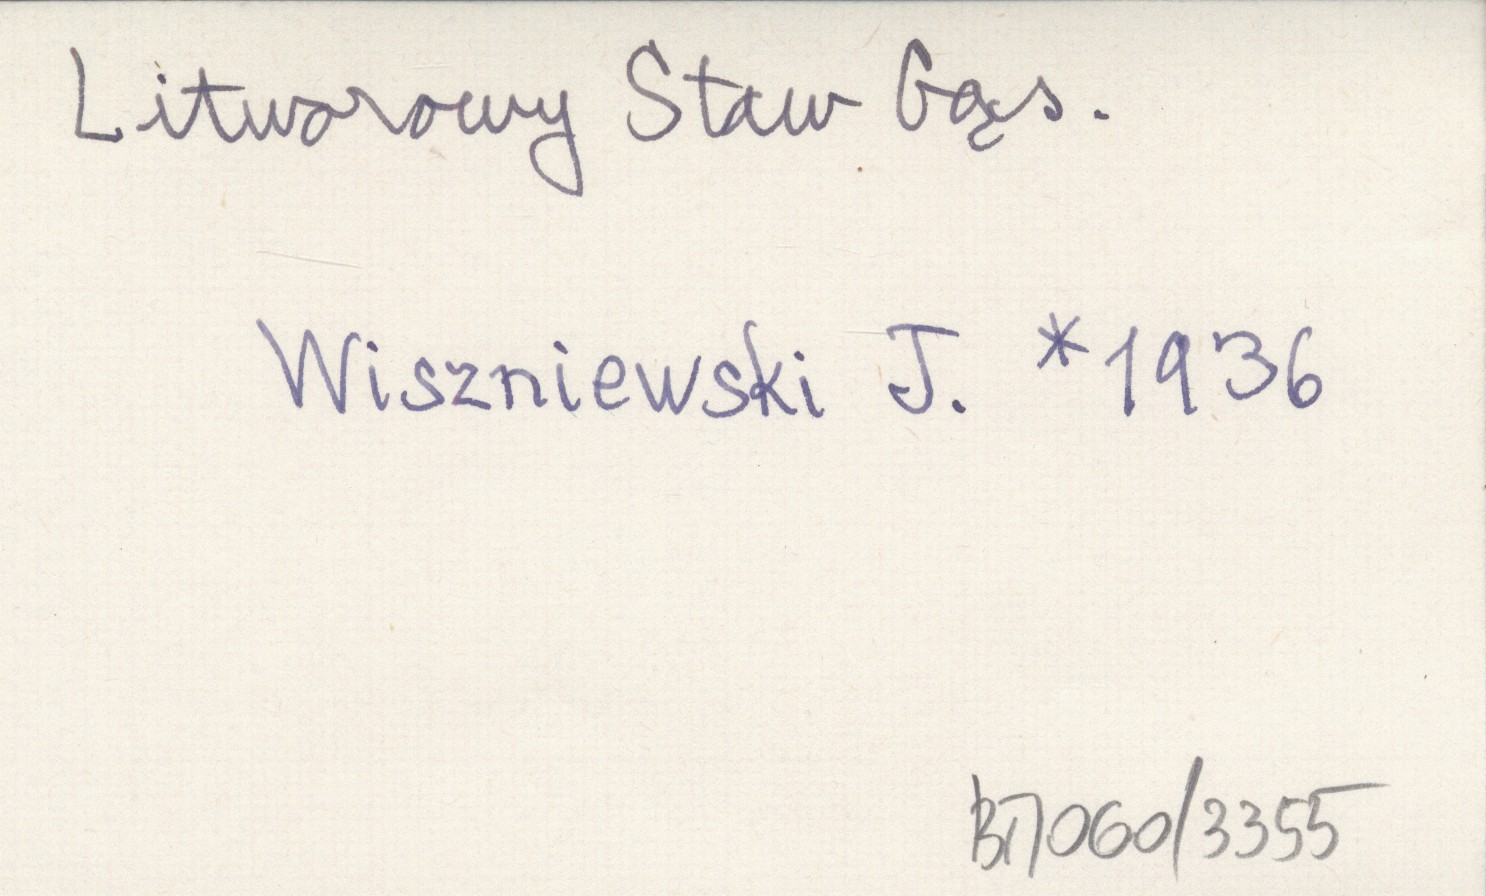 Litworowy Staw Gąs.
Wiszniewski J. *1936
B17060/3355